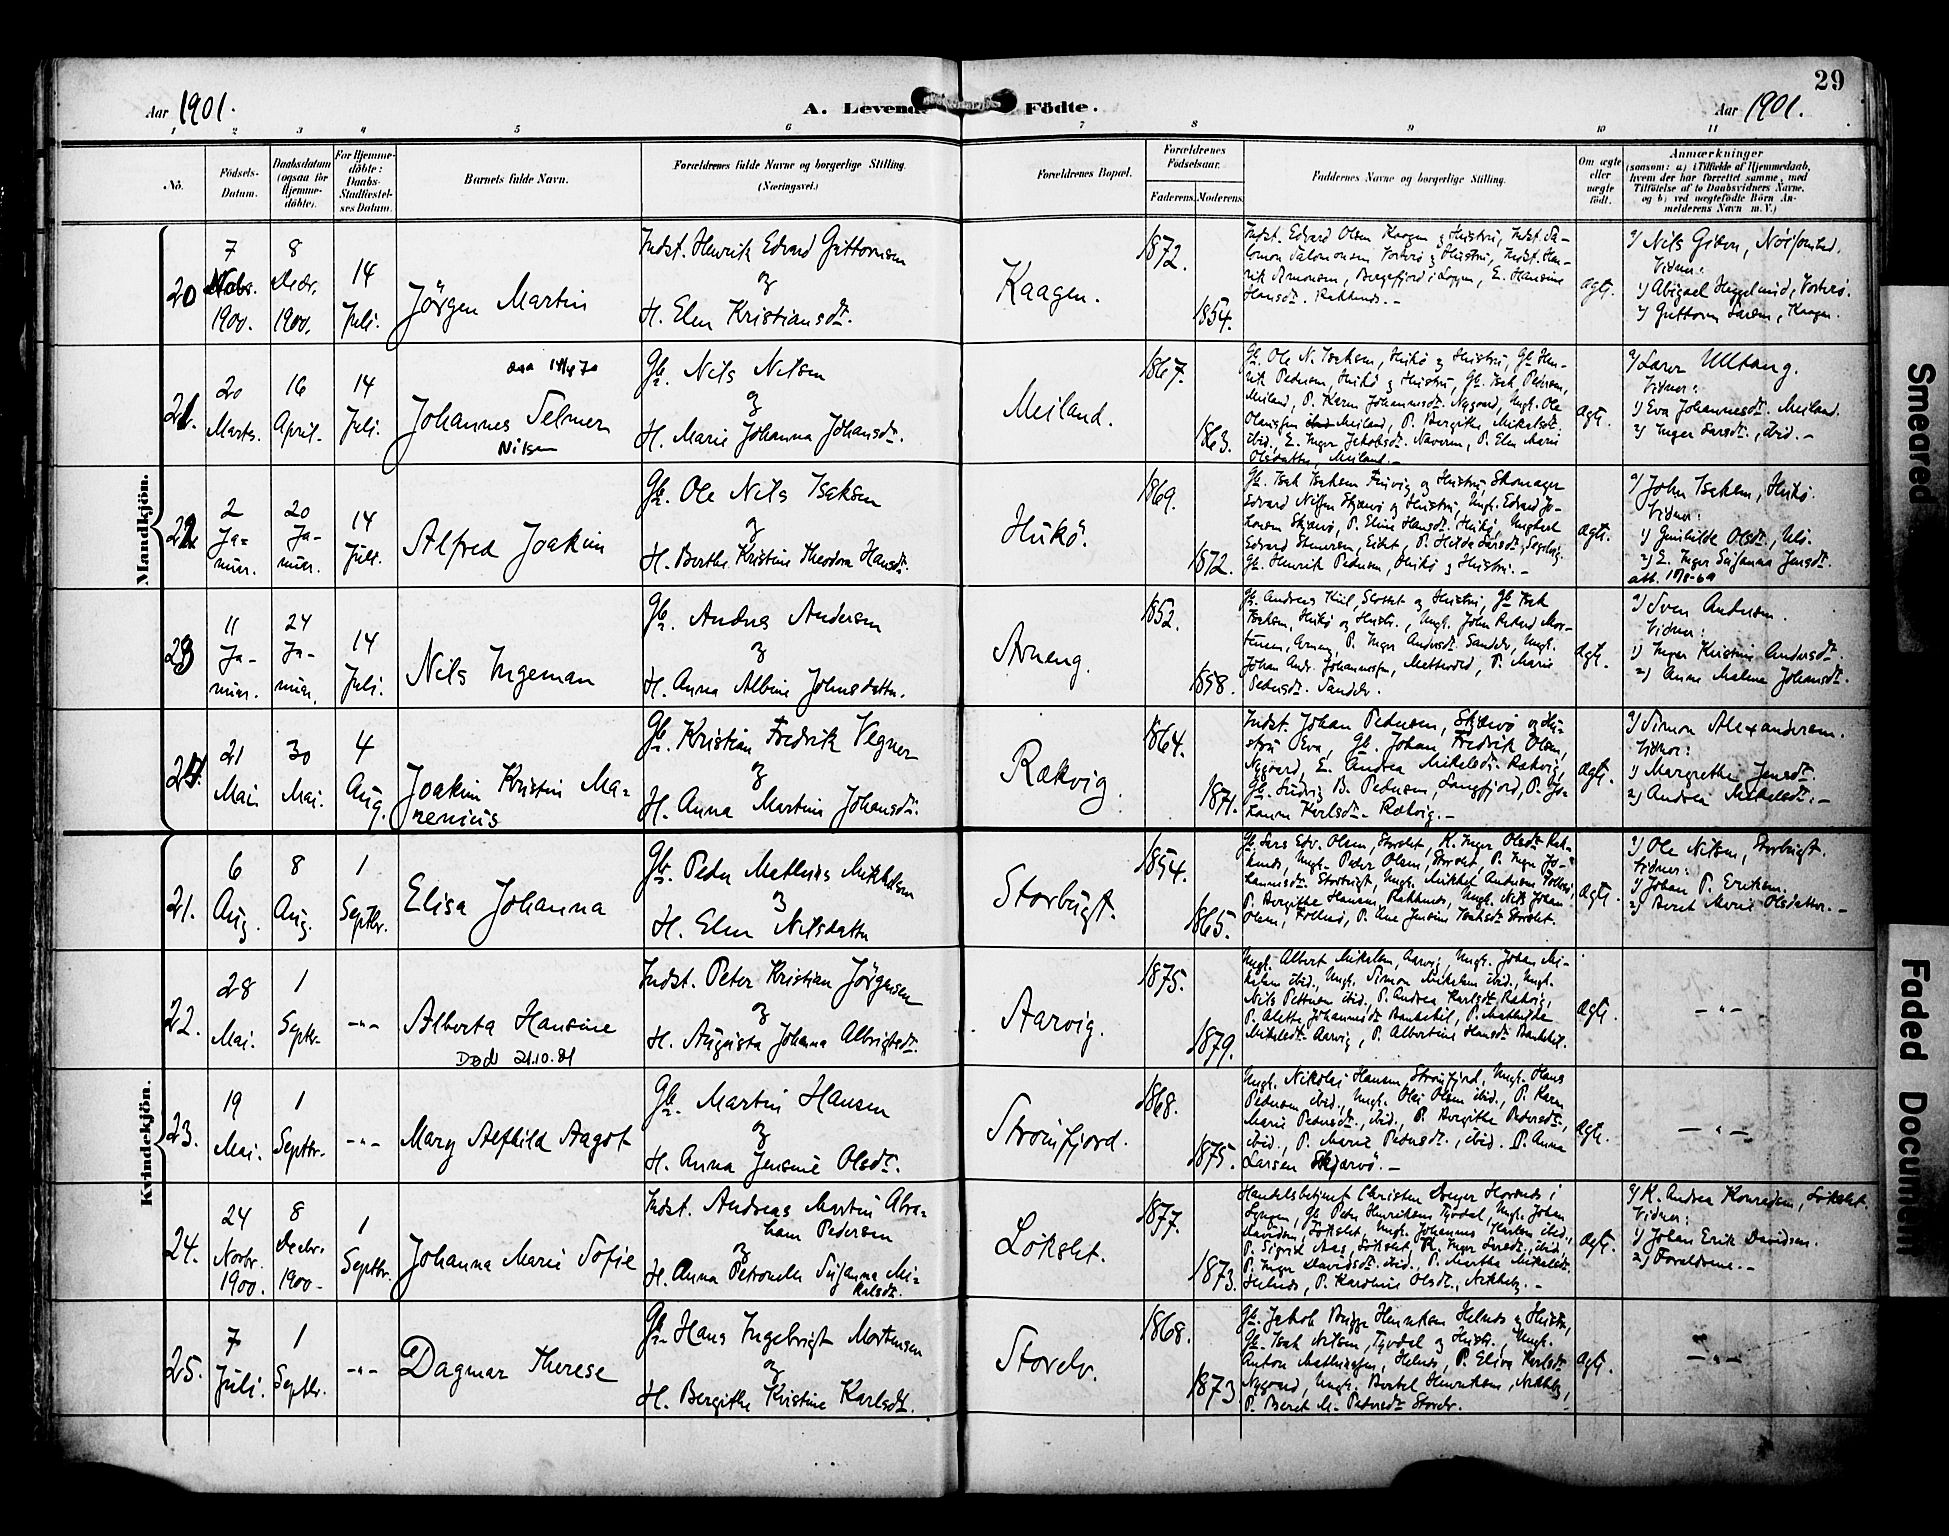 29
Aar 1901.
A. Levende Födte.
Aar 1901.
1 2 3 4 5 6 7 8 9 10 11
No.
Födsels-
Datum.
Daabsdatum
(ogsaa for
Hjemme-
döbte).
For Hjemme-
döbte:
Daabs-
Stadfæstel-
ses Datum.
Barnets fulde Navn.
Forældrenes fulde Navne og borgerlige Stilling.
(Næringsvei.)
Forældrenes Bopæl.
Forældrenes
Födselsaar.
Faderens. Moderens.
Faddernes Navne og borgerlige Stilling.
Om ægte
eller
uægte
födt.
Anmærkninger
(saasom: a) i Tilfælde af Hjemmedaab,
hvem der har forrettet samme, med
Tilföielse af to Daabsvidners Navne,
og b) ved uægtefödte Börn An-
melderens Navn m. V.)
Mandkjön.
20
7
Novbr.
1900.
8
Decbr.
1900.
14
Juli.
Jörgen Martin
Indst. Henrik Edvard Guttormsen
og
H. Elen Kristiansdtr.
Kaagen.
1872.
1854.
Indst. Edvard Olsen Kaagen og Hustru, Indst. Sa-
lomon Salomonsen Vorterö og Hustru, Indst. Hen-
rik Arnonsen,
Hansdt.
ægt.
a) Nils
Vidner:
1) Abigael
2) Guttorm Larsen, Kaagen.
21.
20
Marts.
16
April.
14
Juli.
Johannes Selmer
Nilsen
Gb. Nils Nilsen
og
H. Marie Johanna Johansdt.
Meiland.
1867.
1863.
Gb. Ole N. Isaksen, Hukö og Hustru, Gb. Hen-
rik Pedersen, Hukö og Hustru, Gb. Isak Pedersen,
Meiland, P. Karen Johannesdt. Nygaard, Ungk. Ole
Olaussen Meiland, P. Bergithe Mikelsdt.
ibid., E. Inger Jakobsdt. P. Elen Marie
Olsdatter, Meiland.-
ægt.
a) Lars Ulltang.
Vidner:
1) Eva Johannesdt. Meiland.
2) Inger Larsdt., ibid.-
22
2
Ja-
nuar.
20
Ja-
nuar.
14
Juli.
Alfred Joakim
Gb. Ole Nils Isaksen
og
H. Berthe Kristine Theodora Hansdt.
Hukö.
1869.
1872.
Gb. Isak Isaksen og Hustru, Skomager
Edvard Nilsen Skjærvö og Hustru, Ungk. Edvard Jo-
hansen Skjærvö, P. Eline Hansdt. Hukö, Ungkarl
Edvard P. Hilda Larsdt.,
Gb. Henrik Pedersen, Hukö og Hustru.-
ægt.
a) John Isaksen, Hukö.
Vidner:
1) Gunhilde Olsdt.,
2) E. Inger Susanna Jensdt.
23
11
Ja-
nuar.
24
Ja-
nuar.
14
Juli.
Nils Ingeman
Gb. Andreas Andersen
og
H. Anna Albine Johnsdatter.
Arneng.
1852.
1858.
Gb. Andreas Kiil, og Hustru, Gb. Isak
Isaksen, Hukö og Hustr., Ungk. John Mor-
tensen, Arneng, P. Inger Andersdt. Ungk.
Johan Andr. Johannesen, P. Marie
Pedersdt.
ægt.
a) Sven Andersen.
Vidner:
1) Inger Kristine Andersdt.
2) Anne Malene Johansdt.
24.
21
Mai.
30
Mai.
4
Aug.
Joakim Kristin Ma-
renius
Gb. Kristian Fredrik Vegner
og
H. Anna Martine Johansdt.
Rækvig.
1864.
1871.
Indst. Johan Pedersen, Skjærvö og Hu-
stru Eva, Gb. Johan Fredrik Olsen,
Nygaard, E. Andrea Mikelsdt. Rækvig,
Gb. Ludvig B. Pedersen, Langfjord, P. Jo-
hanne Karlsdt. Rækvig.-
ægt.
a) Simon Alexandersen.
Vidner:
1) Margrethe Jensdt.
2) Andrea Mikelsdt.-
Kvindekjön.
21.
6
Aug.
8
Aug.
1
Septbr.
Elisa Johanna
Gb. Peder Mathias Mikkelsen
og
H. Elen Nilsdatter
Storbugt.
1854.
1865.
Gb. Lars Edv. Olsen, Storslet, K. Inger Olsdt.
Ungk. Peder Olsen, Storslet, P. Inger Jo-
hannesdt. Storbugt, Ungk. Mikkel Andersen
P. Bergithe Hansen, Ungk. Nils Johan
Olsen, P. Ane Jensine Isaksdt. Storslet.
ægt.
a) Ole Nilsen, Storbugt.
Vidner:
1) Johan P. Eriksen.
2) Beret Marie Olsdatter.-
22.
28
Mai.
1
Septbr.
-"-
Alberta Hansine
Død 21.10.81
Indst. Peter Kristian Jörgensen
og
H. Augusta Johanna Albrigtsdt.
Aarvig.
1875.
1879.
Ungk. Albert Mikelsen, Aarvig, Ungk. Johan Mi-
kelsen ibid., Ungk. Simon Mikelsen ibid., Ungk.
Nils Pettersen ibid., P. Andrea Karlsdt. Rækvig,
P. Aletta Johannesdt. P. Mathilde
Mikelsdt. Aarvig, P. Albertine Hansdt.
ægt.
-"-
23.
19
Mai.
1
Septbr.
-"-
Mary Alfhild Aagot
Gb. Martin Hansen
og
H. Anna Jensine Olsdt.
Straumfjord.
1868.
1875.
Ungk. Nikolai Hansen Straumfjord, Ungk. Hans
Pedersen ibid., Ungk. Olai Olsen ibid., P. Karen
Marie Pedersdt., ibid., P. Bergithe Pedersdt.,
ibid., P. Marie Pedersdt., ibid. P. Anna
Larsen Skjærvö.-
ægt.
-"-
24.
24
Novbr.
1900.
8
Decbr.
1900-
1
Septbr.
Johanna Marie Sofie
Indst. Andreas Martin Abra-
ham Pedersen
og
H. Anna Petronelle Susanna Mi-
kalsdt.
Lökslet.
1877.
1873.
Handelsbetjent Christen Dreyer Havnnes i
Lyngen, Gb. Peter Henriksen Tyvdal, Ungk. Johan
Davidsen, Lökslet, Ungk. Johannes Karlsen ibid.,
P. Sigrid Aas, Lökslet, K. Inger Larsdt., ibid.,
P. Inger Davidsdt. ibid., P. Martha Mikelsdt.
Helnes, P. Karoline Olsdt.,
ægt.
a) K. Andrea Konradsen, Lökslet.
Vidner:
1) Johan Erik Davidsen.
2) Forældrene.-
25.
7
Juli.
1
Septbr.
-"-
Dagmar Therese
Gb. Hans Ingebrigt Mortensen
og
H. Bergithe Kristine Karlsdt.
Storelv.
1868.
1873.
Gb. Jakob Henriksen Helnes og Hustru,
Gb. Isak Nilsen, Tyvdal og Hustr., Ungk.
Anton Mathiassen, Helnes, P. Elisa Karlsdt.
Nygaard, Ungk. Bertel Henriksen,
P. Beret M. Pedersdt. Storelv.
ægt.
-"-
Smeared
Faded Document